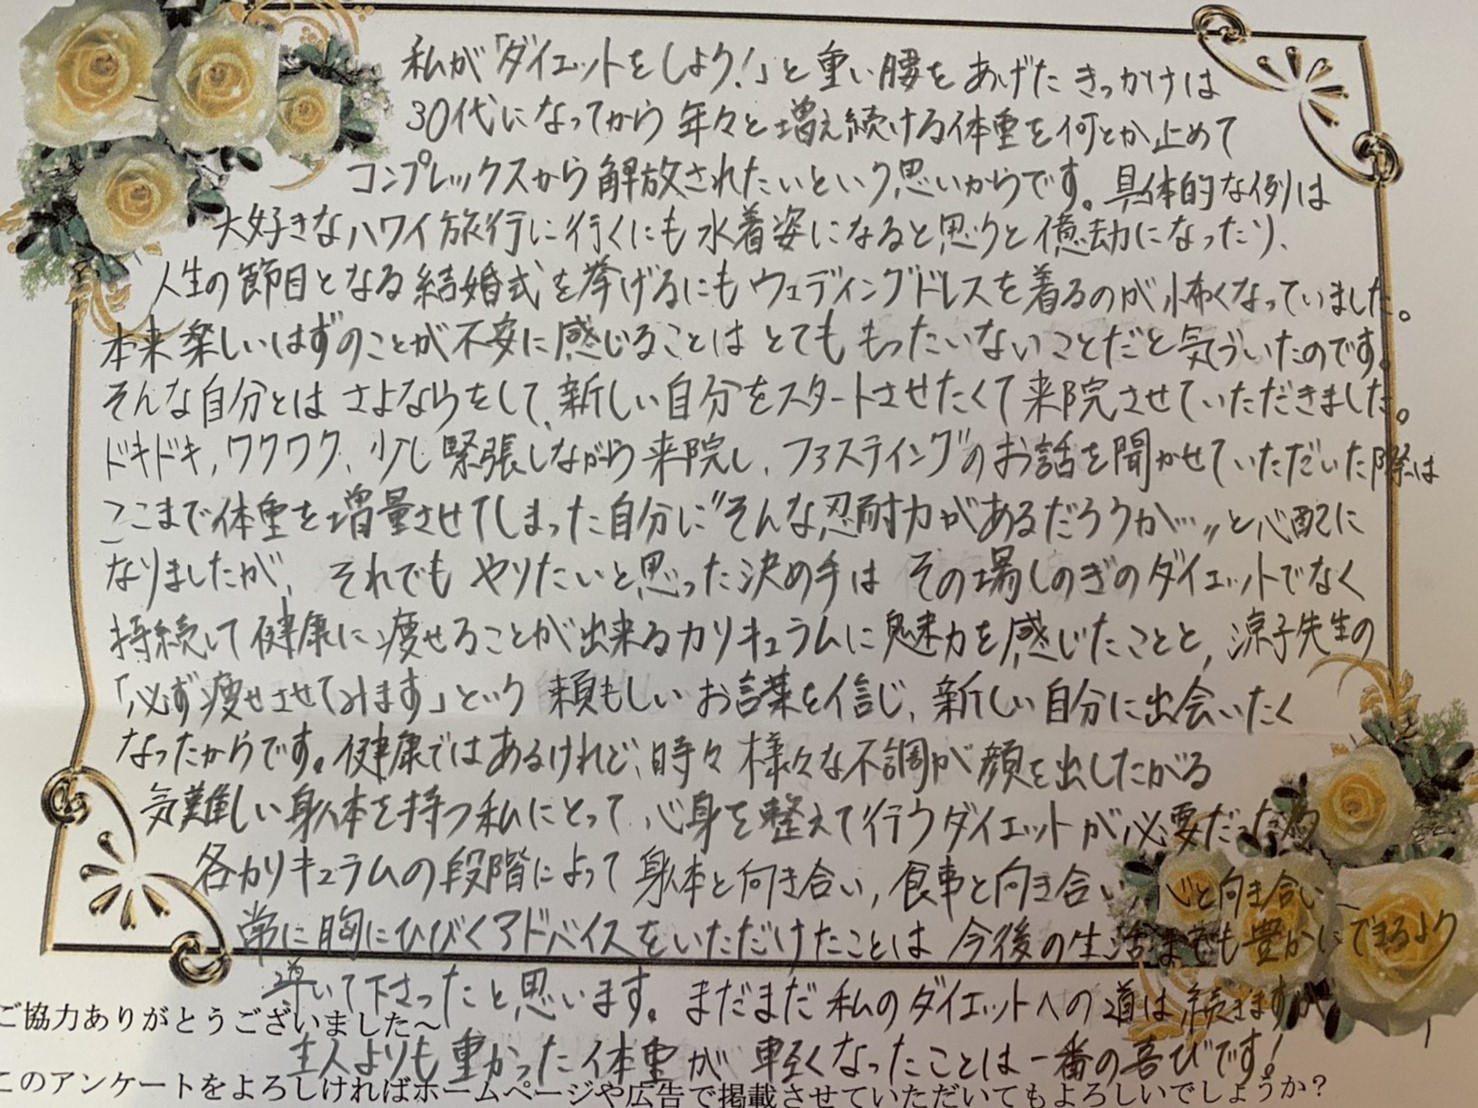 私が「ダイエットをしよう!」と重い腰をあげたきっかけは
30代になってから年々と増え続ける体重を何とか止めて
コンプレックスから解放されたいという思いからです。具体的な例は
大好きなハワイ旅行に行くにも水着姿になると思うと億劫になったり、
人生の節目となる結婚式を挙げるにもウェディングドレスを着るのが怖くなっていました。
本来楽しいはずのことが不安に感じることはとてももったいないことだと気づいたのです。
そんな自分とはさよならをして、新しい自分をスタートさせたくて来院させていただきました。
ドキドキ,ワクワク、少し緊張しながら来院し、ファスティングのお話を聞かせていただいた際は
ここまで体重を増量させてしまった自分に"そんな忍耐力があるだろうか…"と心配に
なりましたが、それでもやりたいと思った決め手はその場しのぎのダイエットでなく
持続して健康に痩せることが出来るカリキュラムに魅力を感じたことと,涼子先生の
「必ず痩せさせてみます」という頼もしいお言葉を信じ、新しい自分に出会いたく
なったからです。健康ではあるけれど、時々様々な不調が顔を出したがる
気難しい身体を持つ私にとって、心身を整えて行うダイエットが必要だった為
各カリキュラムの段階によって身体と向き合い,食事と向き合い,心と向き合い、
常に胸にひびくアドバイスをいただけたことは今後の生活までも豊かにできるよう
導いて下さったと思います。まだまだ私のダイエットへの道は続きますが
ご協力ありがとうございました~
主人よりも重かった体重が軽くなったことは一番の喜びです!
このアンケートをよろしければホームページや広告で掲載させていただいてもよろしいでしょうか?